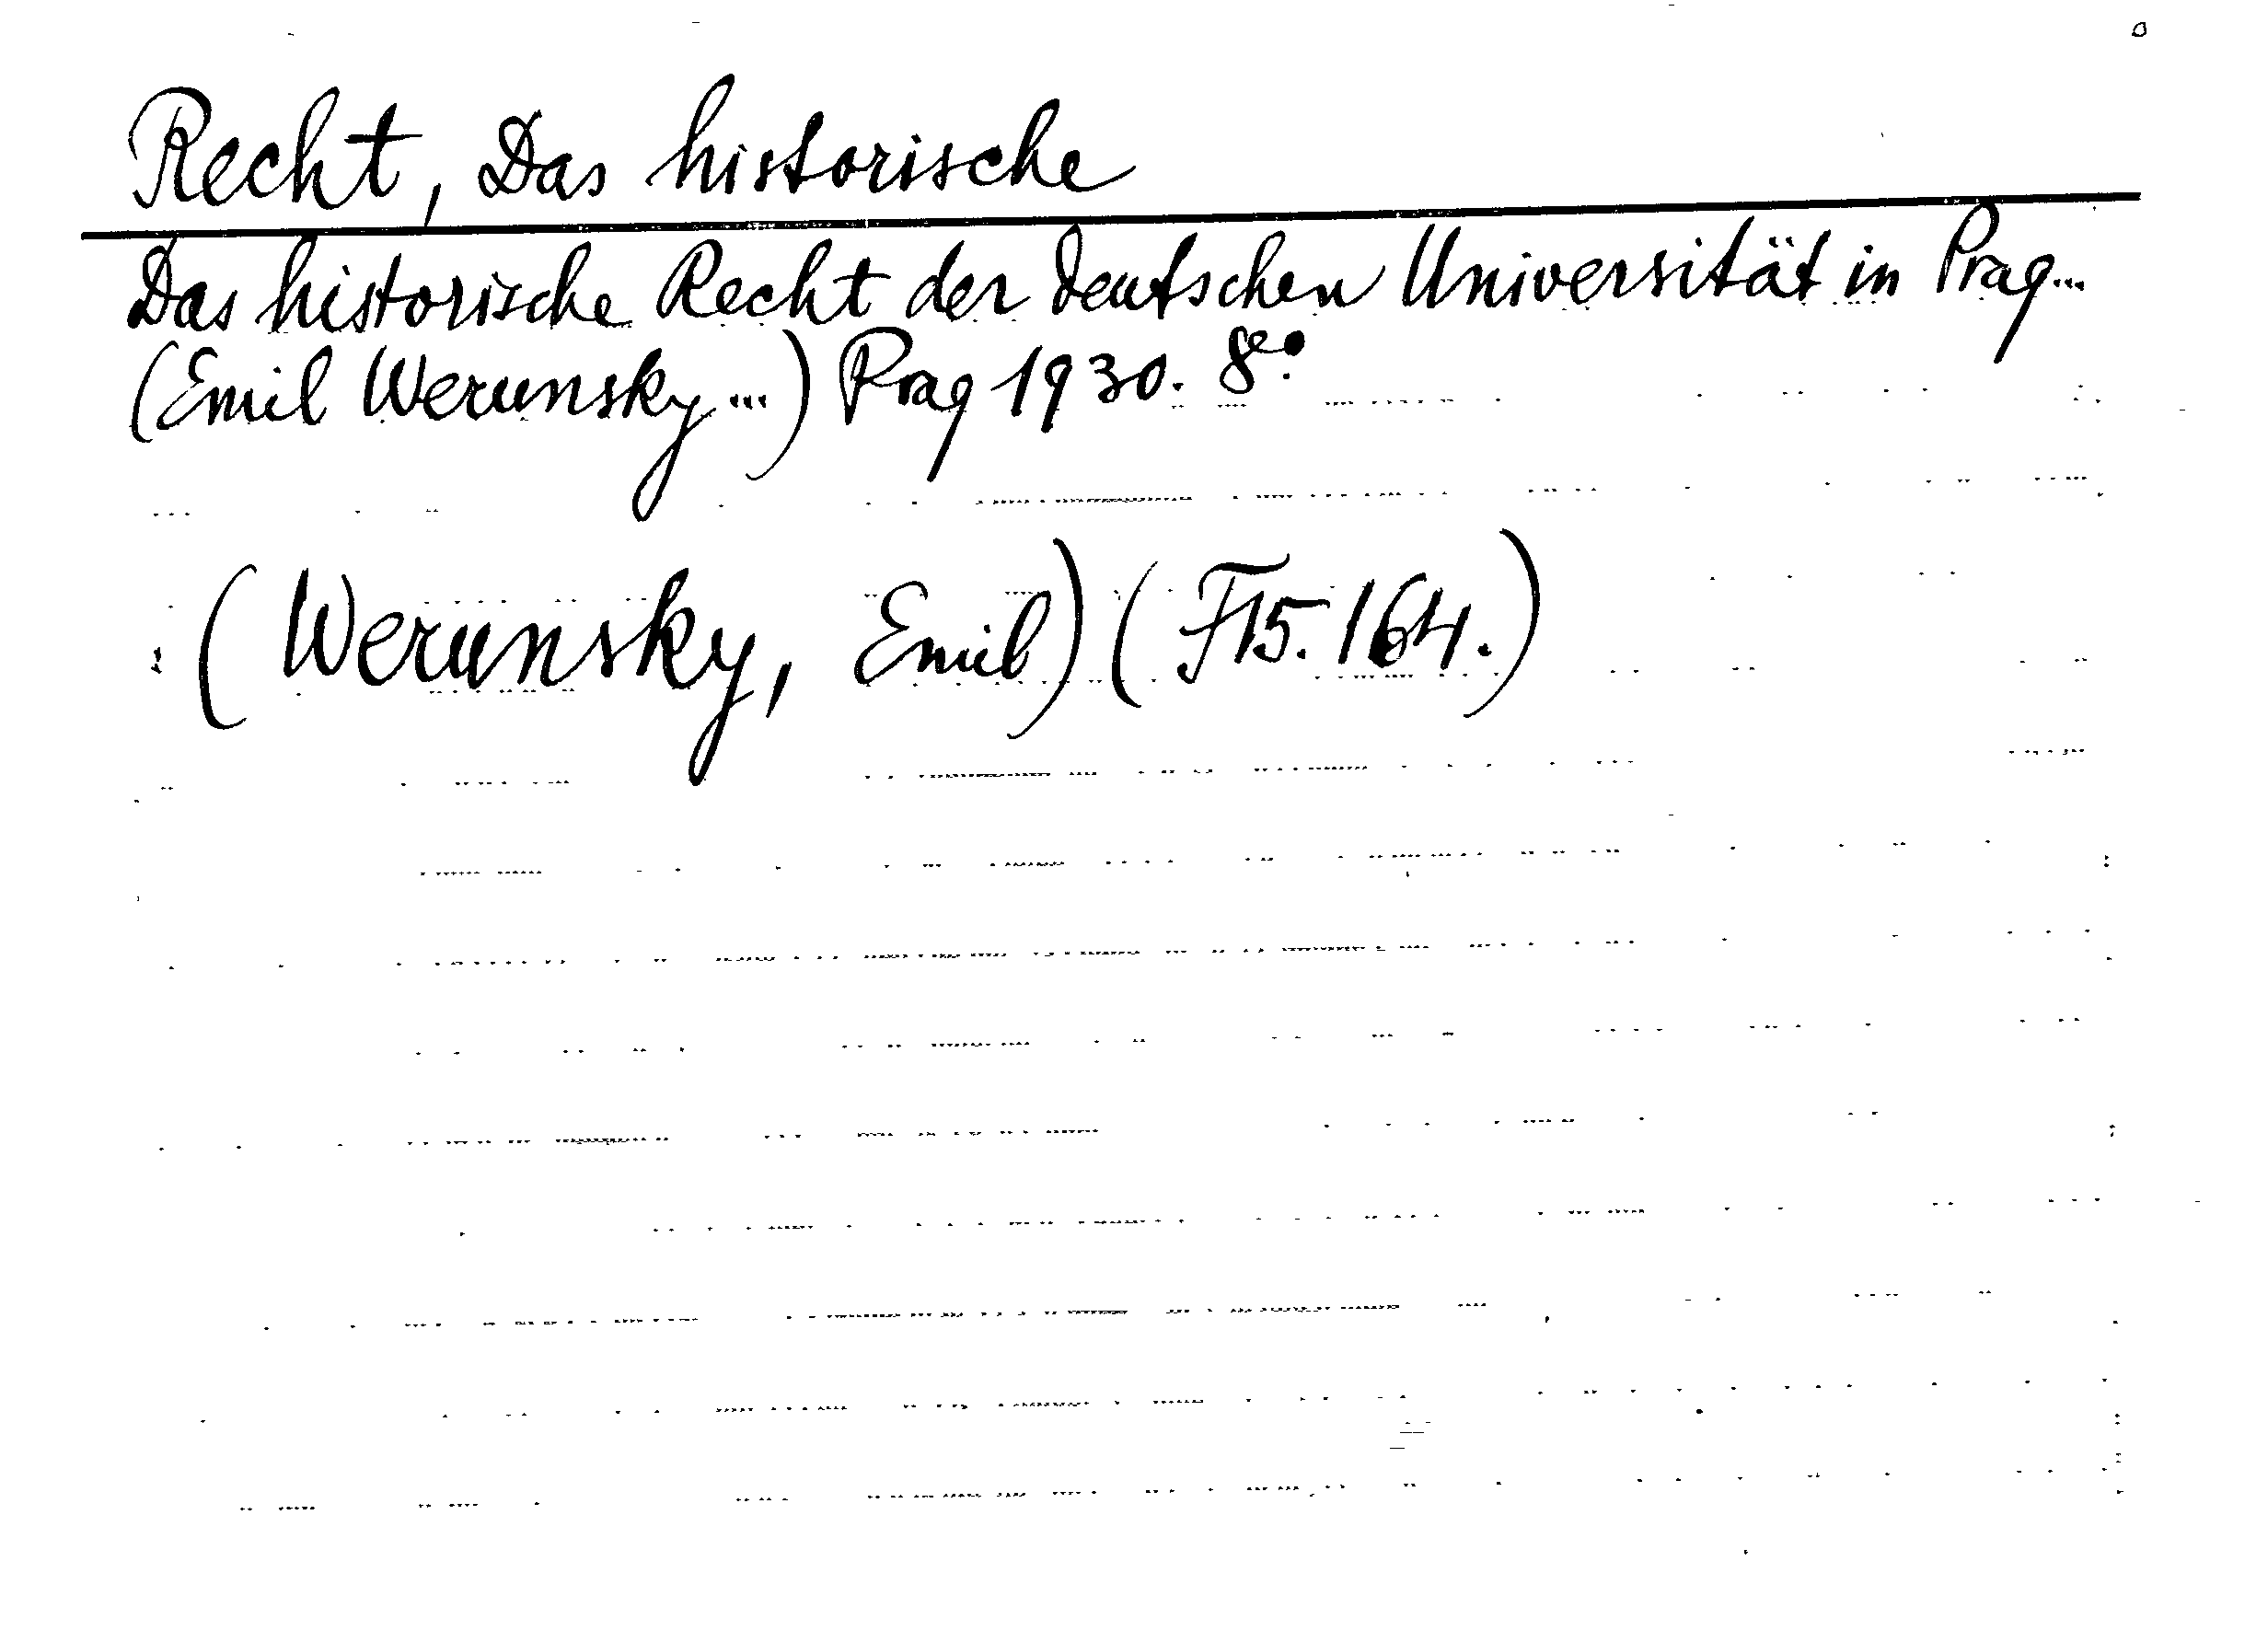 Recht, Das historische
Das historische Recht der deutschen Universität in Prag...
(Emil Werunsky...) Prag 1930. 8°.
(Werunsky, Emil) (F15.164.)